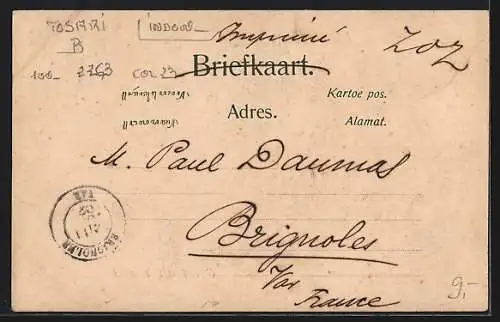 TOSARI
B
INDON
Imprimé
202
100 2263 COL 23
Briefkaart.
Kartoe pos.
Adres.
Alamat.
M. Paul Daumas
BRIGNOLES
VAR
Brignoles
Var
France
9.-